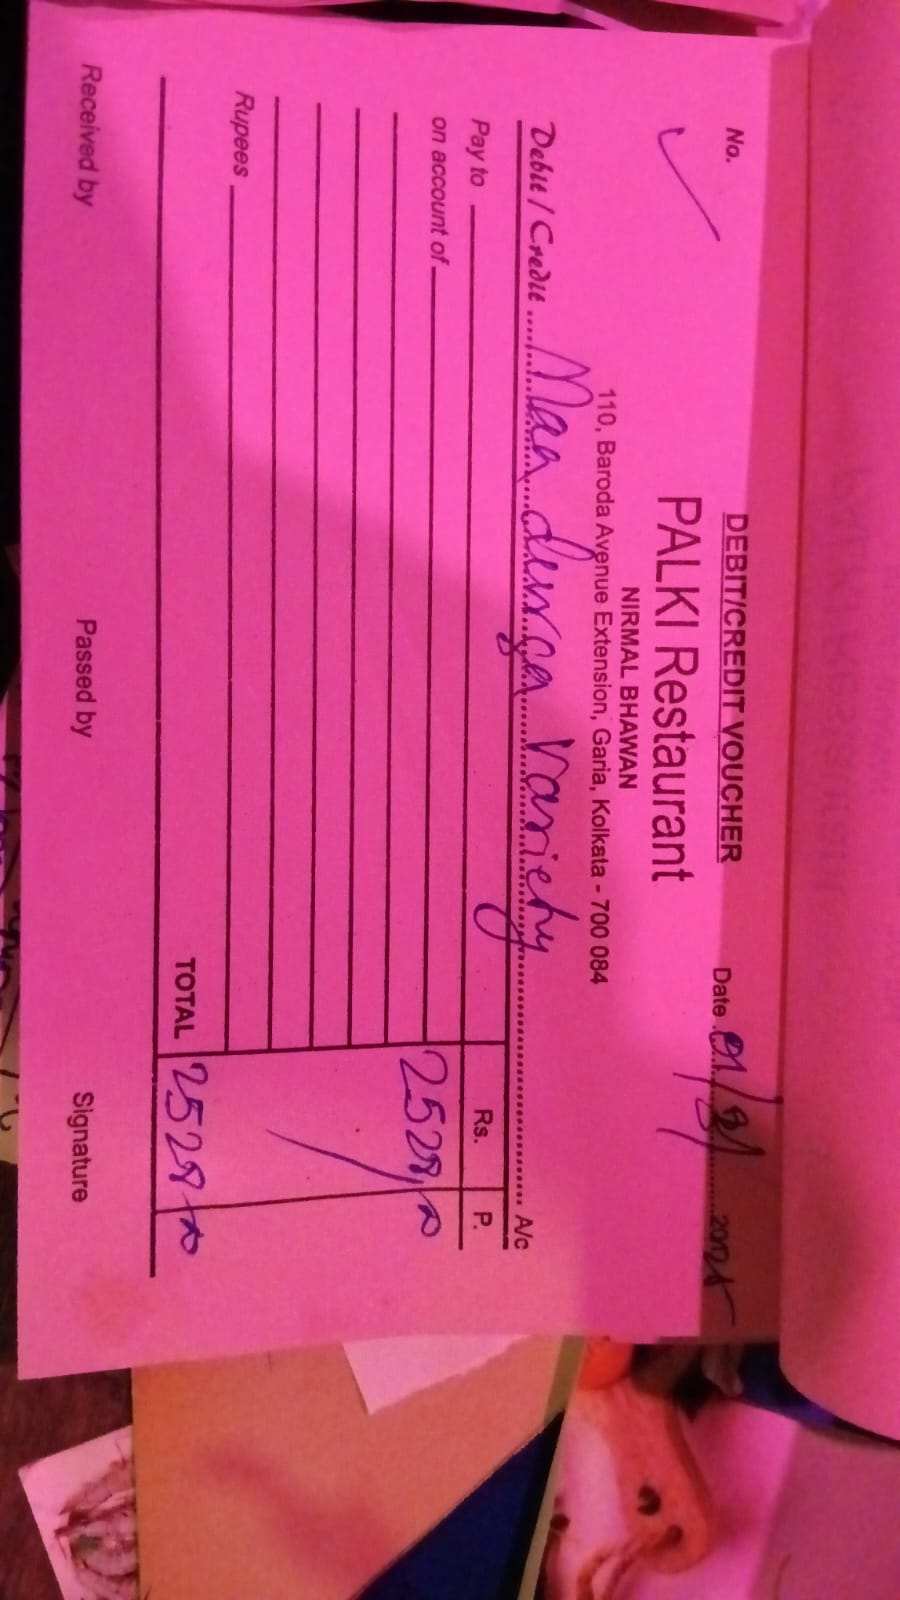 No.
DEBIT/CREDIT VOUCHER
Date 01/ /2025
PALKI Restaurant
NIRMAL BHAWAN
110, Baroda Avenue Extension, Garia, Kolkata - 700 084
Debit / Credit Maa durga Variety A/c
Pay to Rs. P.
on account of 2528,00
Rupees
TOTAL 2528 00
Received by Passed by Signature